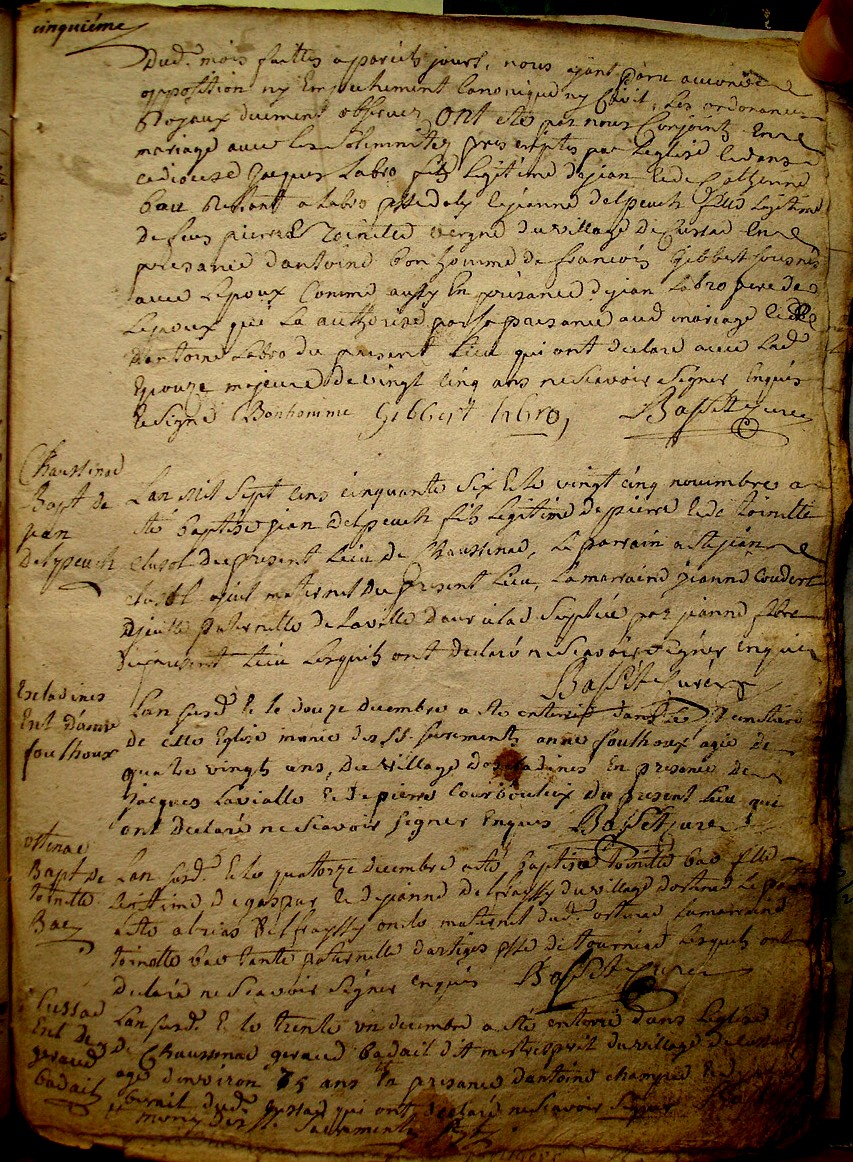 cinquiéme
Dud. mois faittes a pareils jours, nous ayant paru aucune
opposition ny Empechement Canonique ny Civil, Les ordonances
Royaux duement observer ont eté par nous Conjoints En
mariage avec les solemnitez prescriptes par leglise
Jacques Labro fils Legitime de jean et de Catherine
bac a Labro psse jeanne delpeuch fille Legitime
de feus pierre toinette vergne du village de Cussac En
presance dantoine bonhomme de francois Gibbert
avec Lepoux Comme aussy En presance de jean Labro pere de
Lepoux qui La authorisé par sa presance aud mariage
dantoine Labro du present Lieu qui ont declaré avec Lad.
Epouze majeure de vingt cinq ans ne Scavoir Signer Enquis
Le signé Bonhomme Gibbert labro, Bassét curé
Chaussenac
Bapt de
jean
Delpeuch
Lan Mil Sept Cens cinquante Six Et le vingt cinq novembre a
eté baptisé jean delpeuch fils Legitime de pierre et de toinette
Clusol du present Lieu de Chaussenac, Le parrain a eté jean
ajeul maternel du present Lieu, La marraine jeanne Couderc
ajeulle paternelle de la ville daurilac Suplée par jeanne
du present Lieu Lesquels ont declaré ne Scavoir Signer enquis
Bassét curé
Escladines
Ent danne
foulhoux
Lan susd. Et le douze decembre a eté enterrée dans Le Cimetiere
de cette Eglise munie des Sts. Sacrements anne foulhoux agée de
quatre vingts ans, du village descladines En presance de
jacques Lavialle et de pierre Courbouleix du present Lieu qui
ont declaré ne Scavoir signer Enquis Bassét curé
ostenac
Bapt de
toinette
Bac
Lan susd. Et le quatorze decembre a eté baptisé toinette bac fille
Legitime de gaspar et de jeanne delfraissy du village dostenac Le parrain
a eté delfraissy oncle maternel dud. ostenac La marraine
toinette bac tante paternelle dartiges psse de tourniac Lesquels ont
declaré ne Scavoir Signer enquis Bassét curé
Cussac
Ent de
geraud
badail
Lan susd. Et le trente un decembre a eté enterré dans Leglise
de Chaussenac geraud badail dit du village de Cussac
agé d'environ 75 ans En presance dantoine
dud. Cussac qui ont declaré ne Scavoir Signer
muny des Sts. Sacrements